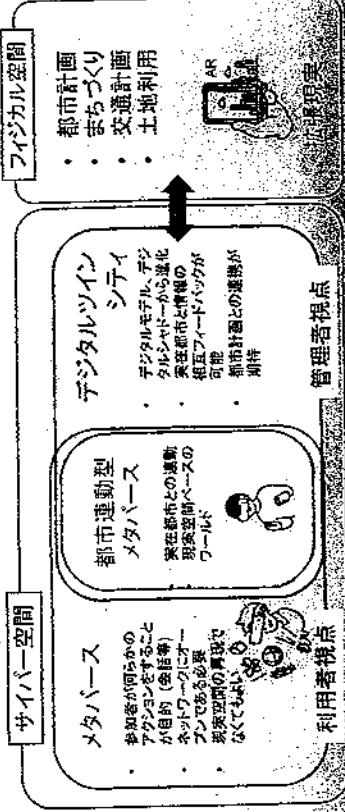 サイバー空間
メタバース
・ 参加者が何らかの
アクションをすること
が目的（会話等）
・ ネットワークにオー
プンである必要
・ 現実空間の再現で
なくてもよい
利用者視点
都市連動型
メタバース
実在都市との連動
現実空間ベースの
ワールド
デジタルツイン
シティ
・ デジタルモデル、デジ
タルシャドーから進化
・ 実在都市と情報の
相互フィードバックが
可能
・ 都市計画との連携が
期待
管理者視点
フィジカル空間
・ 都市計画
・ まちづくり
・ 交通計画
・ 土地利用
AR
拡張現実